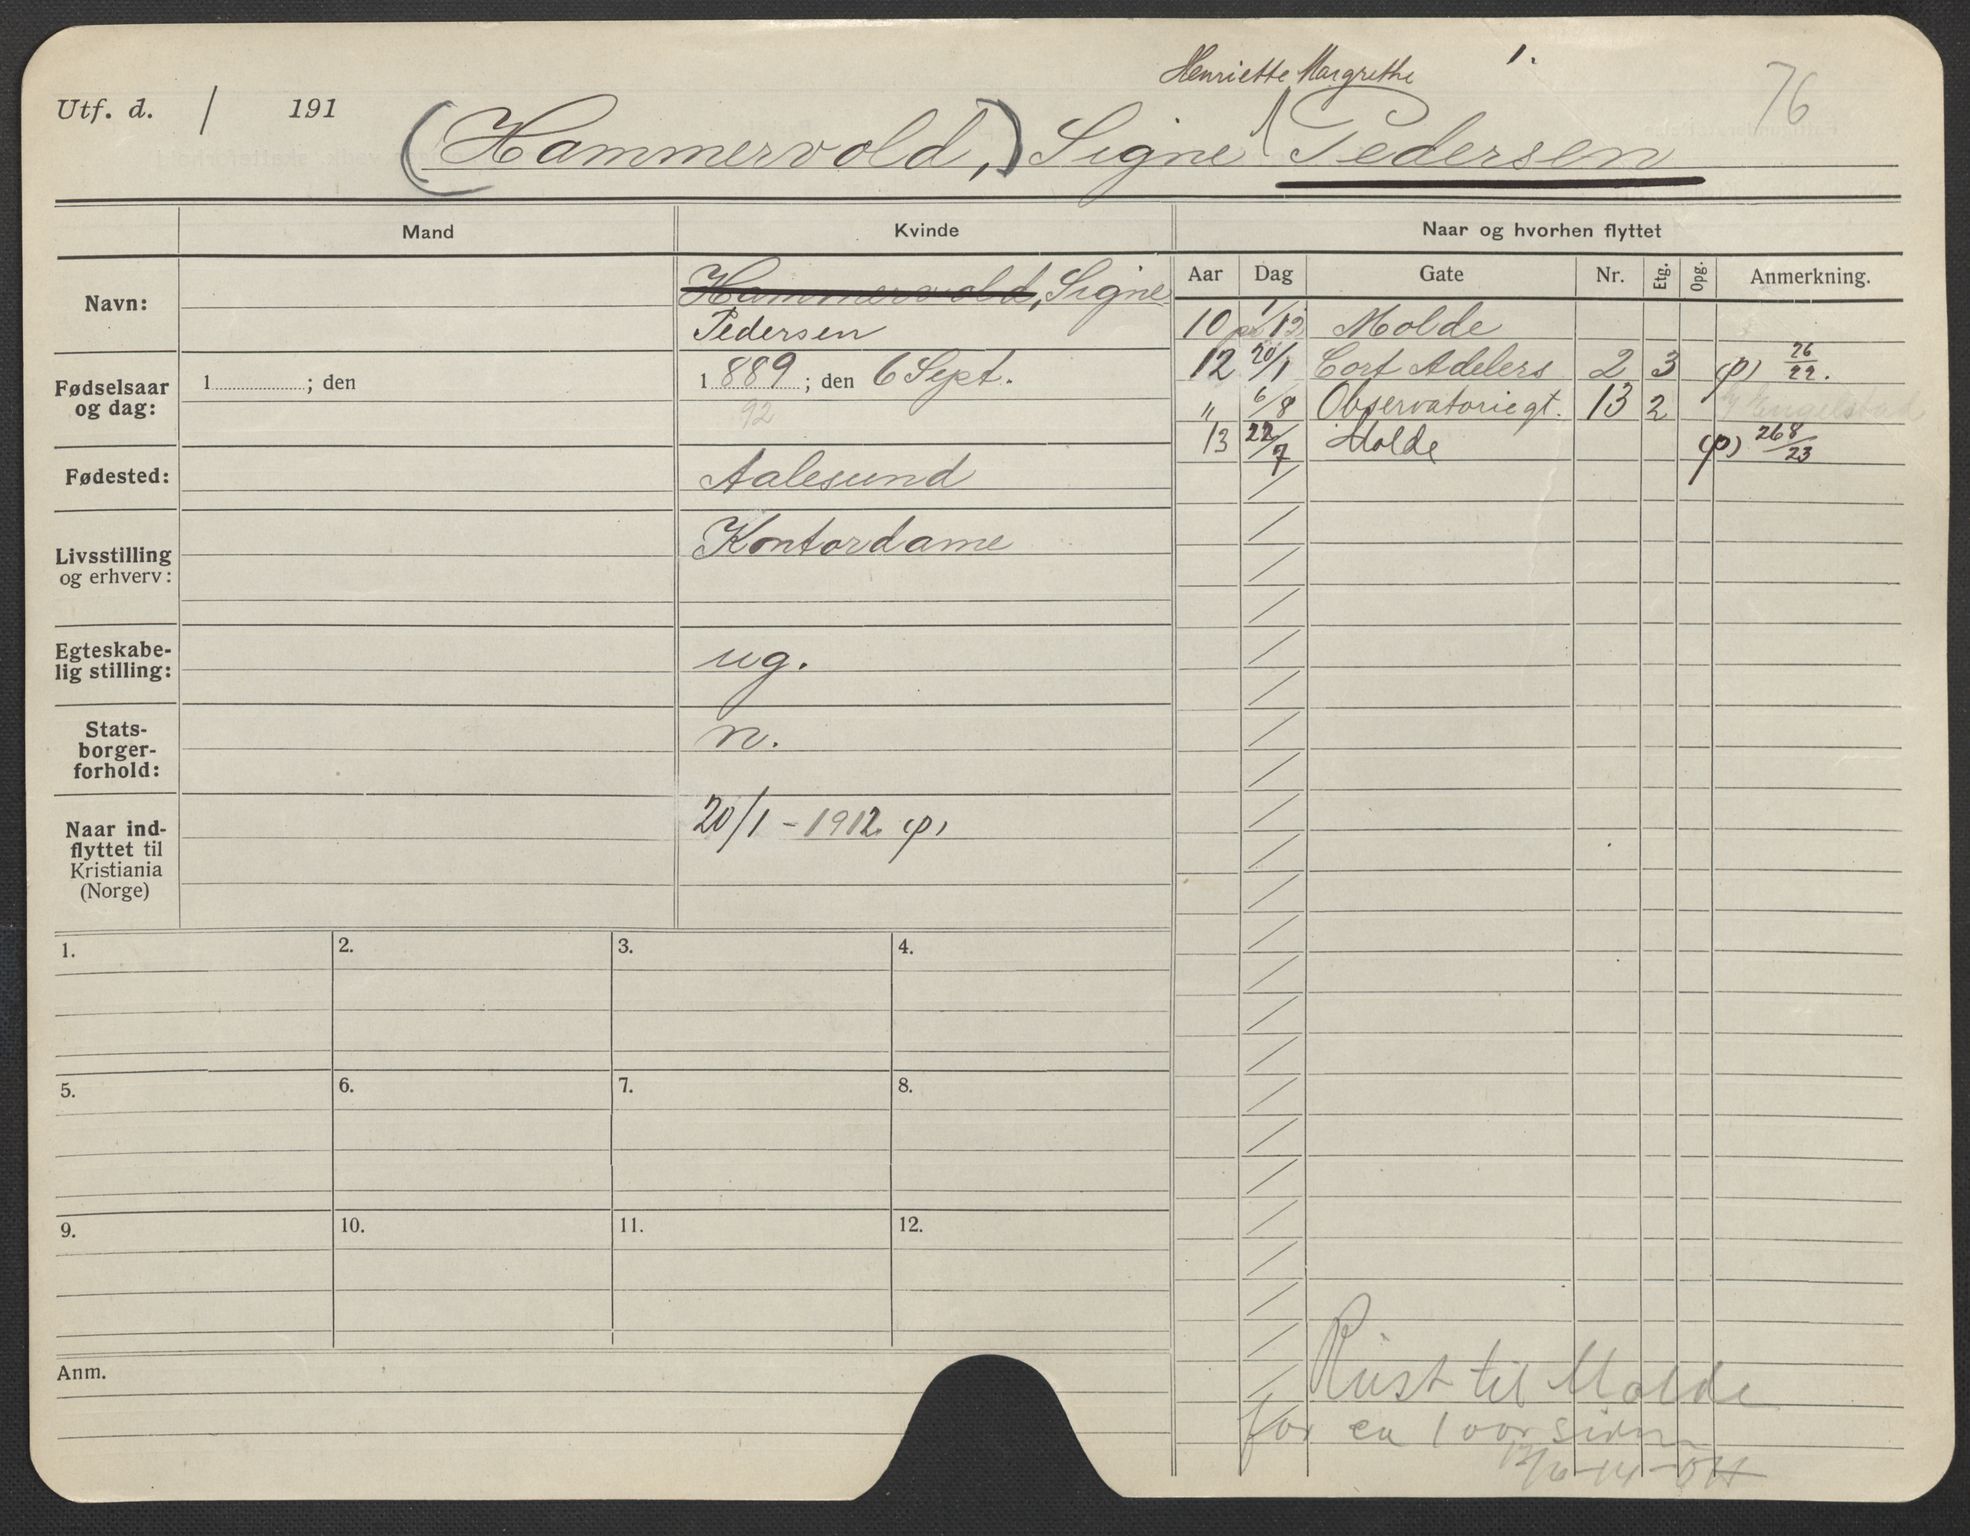 Henriette Margrethe 1.
76
Utf. d. / 191
(Hammervold,) Signe Pedersen
Mand Kvinde Naar og hvorhen flyttet
Aar Dag Gate Nr. Etg. Opg. Anmerkning.
Navn: Hammervold, Signe
Pedersen
Fødselsaar
og dag:
1 ; den
1 889 ; den 6 Sept.
92
Fødested: Aalesund
Livsstilling
og erhverv: Kontordame
Egteskabe-
lig stilling: ug.
Stats-
borger-
forhold: n.
Naar ind-
flyttet til
Kristiania
(Norge)
20/1 - 1912 (p)
10 1/12 Molde
12 20/1 Cort Adelers 2 3 (p) 26/22.
" 6/8 Observatoriegt. 13 2 Engelstad
13 22/7 Molde (p) 268/23
1. 2. 3. 4.
5. 6. 7. 8.
9. 10. 11. 12.
Anm.
til Molde
for ca 1 aar siden